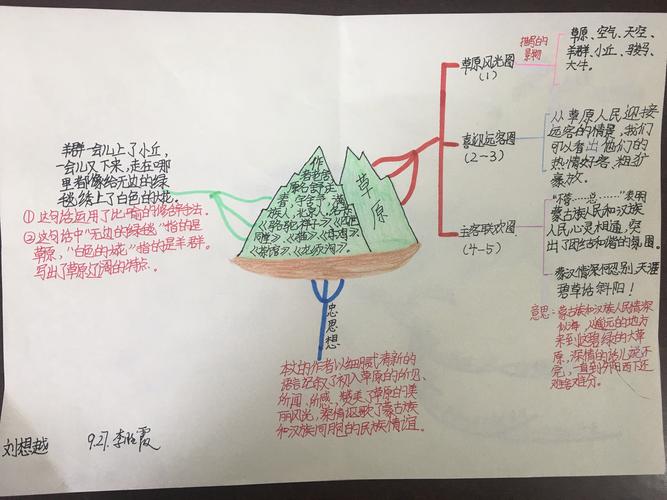 羊群一会儿上了小丘,
一会儿又下来,走在哪
里都像给无边的绿
毯绣上了白色的大花。
①这句话运用了比喻的修辞手法。
②这句话中“无边的绿毯”指的是
草原,“白色的大花”指的是羊群。
写出了草原辽阔的特点。
草原
作
者老舍
原名舒庆
春,字舍予,满
族人,北京人,
《骆驼祥子》《四世
同堂》
《茶馆》《龙须沟》。
草原风光图
(1)
描写的
景物
草原、空气、天空、
羊群、小丘、骏马、
大牛。
喜迎远客图
(2-3)
从草原人民迎接
远客的情景,我们
可以看出他们的
热情好客、粗犷
豪放。
主客联欢图
(4-5)
表明
蒙古族人民和汉族
人民心灵相通,突
出了团结和谐的氛围。
蒙汉情深何忍别,天涯
碧草话斜阳!
意思:蒙古族和汉族人民情深
似海,从遥远的地方
来到这碧绿的大草
原,深情的话儿说不
完,一直到夕阳西下还
难舍难分。
忠思想
本文的作者以细腻清新的
语言记叙了初入草原的所见、
所闻、所感,赞美了草原的美
丽风光,深情讴歌了蒙古族
和汉族同胞的民族情谊。
刘想越
9.27.李晗霞